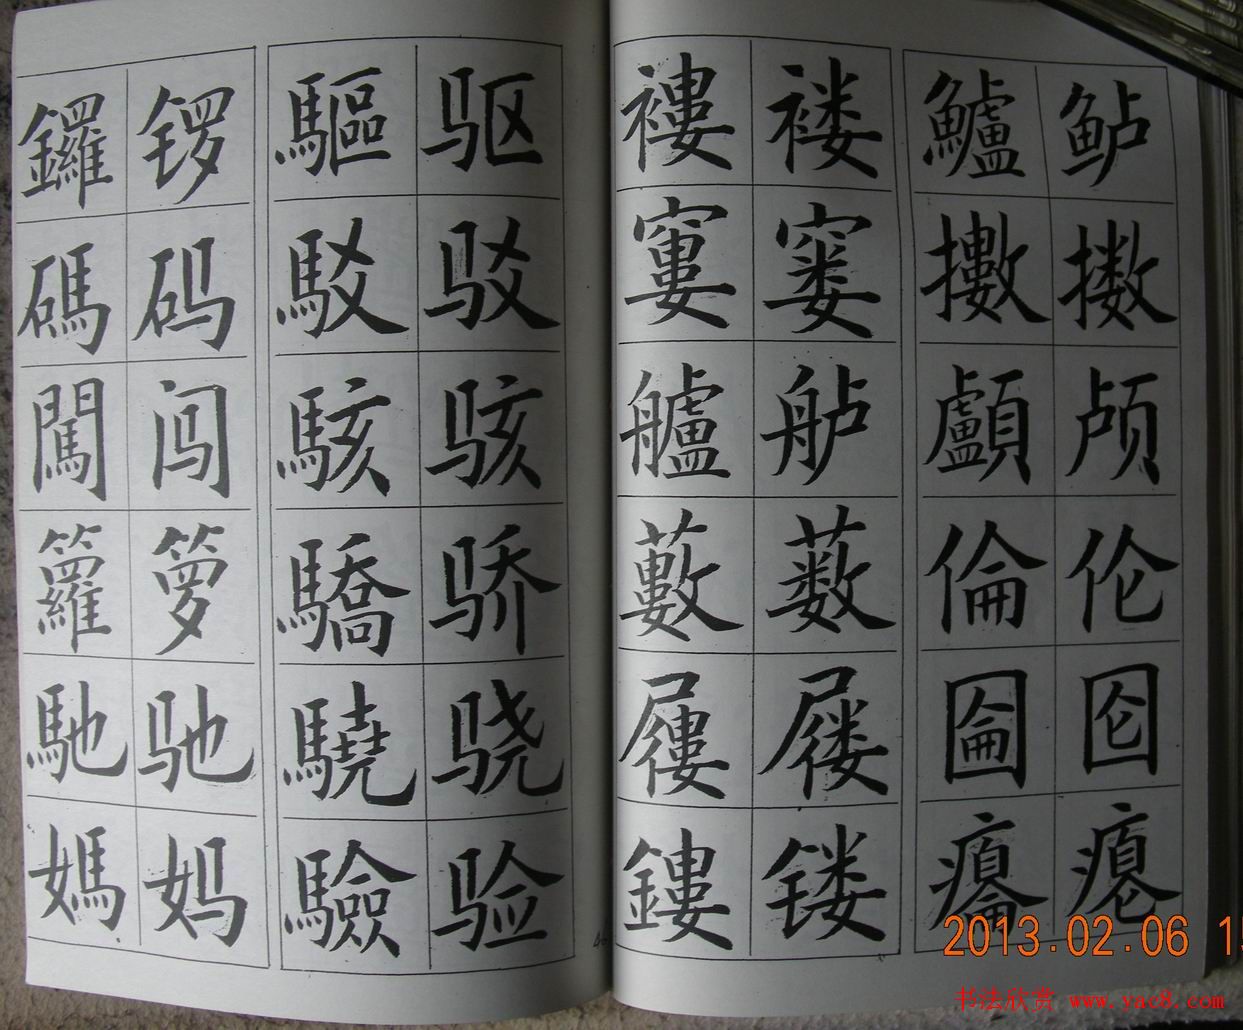 鑼 锣 驅 驱
碼 码 駁 驳
闖 闯 駭 骇
籮 箩 驕 骄
馳 驰 驍 骁
媽 妈 驗 验
褸 褛 鱸 鲈
窶 窭 擻 擞
艫 舻 顱 颅
藪 薮 倫 伦
屨 屦 圇 囵
鏤 镂 癟 瘪
2013.02.06
书法欣赏 www.yac8.com